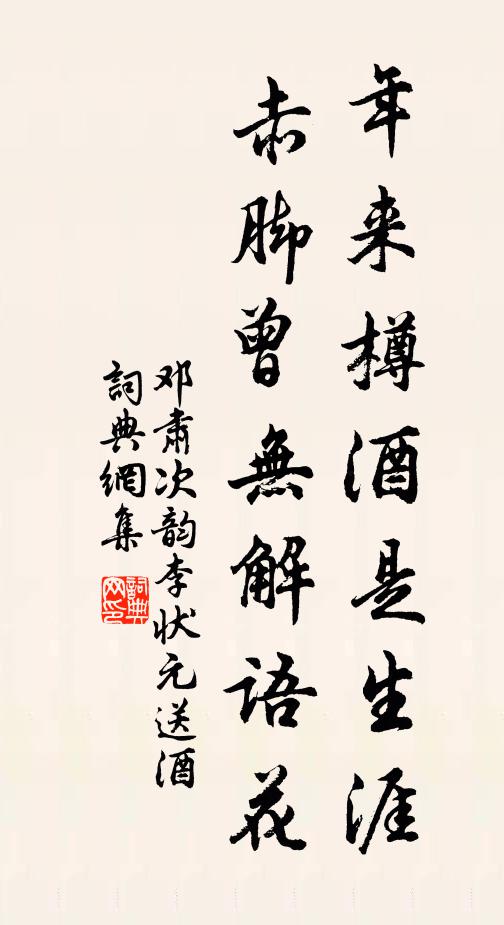 年来樽酒是生涯
赤脚曾無解語花
邓肅次韵李状元送酒
詞典網集
詞典網印